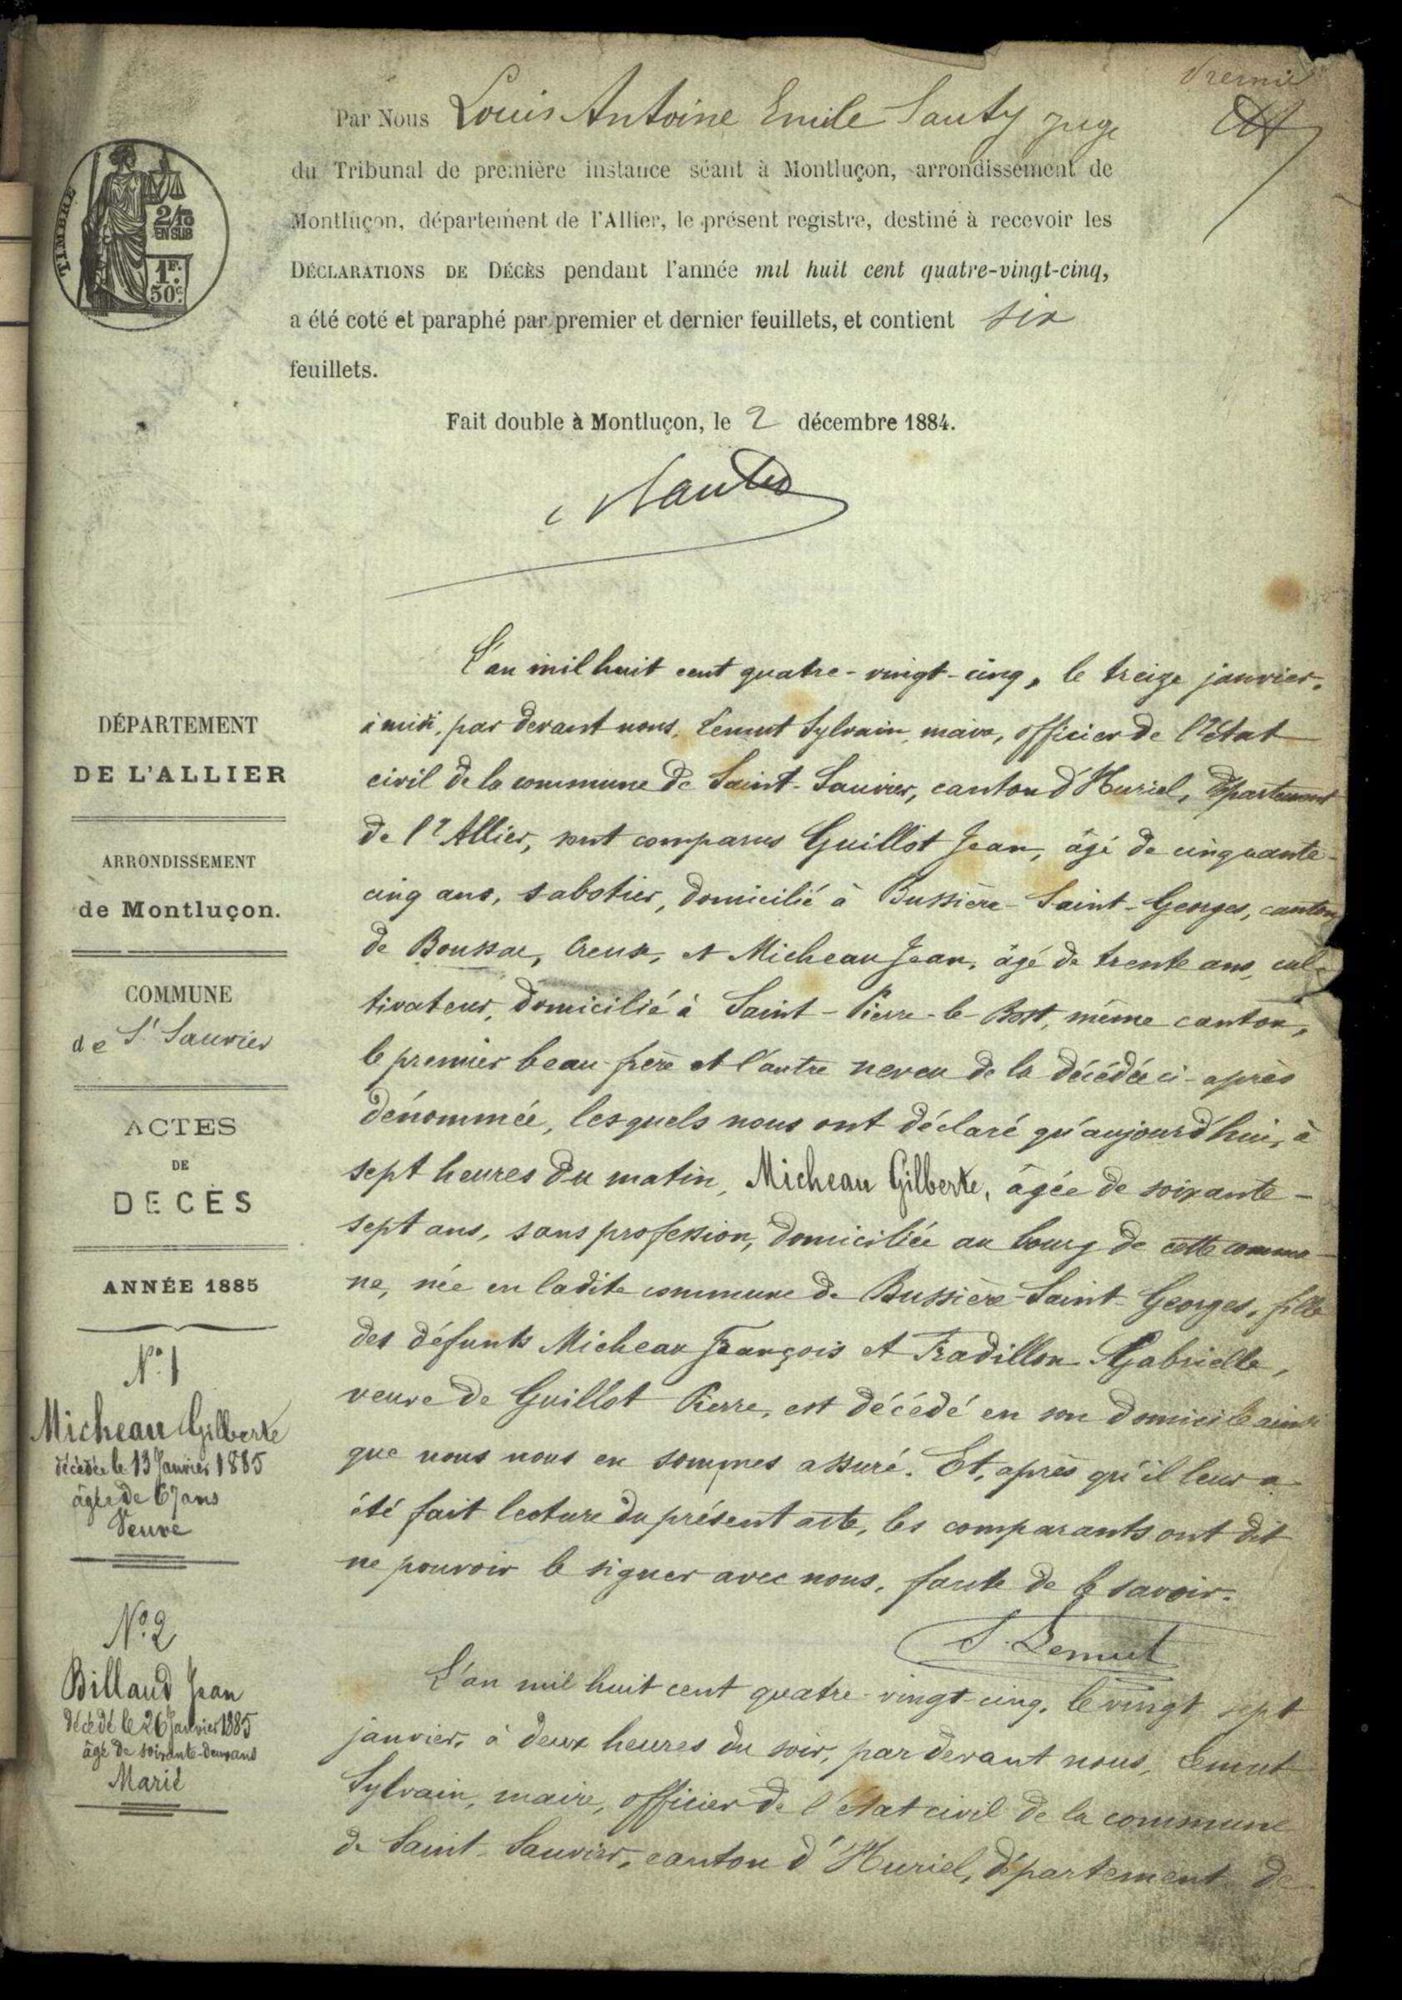 Premier
Par Nous Louis Antoine Emile Sauty juge
du Tribunal de première instance séant à Montluçon, arrondissement de
Montluçon, département de l'Allier, le présent registre, destiné à recevoir les
DÉCLARATIONS DE DÉCÈS pendant l'année mil huit cent quatre-vingt-cinq,
a été coté et paraphé par premier et dernier feuillets, et contient six
feuillets.
Fait double à Montluçon, le 2 décembre 1884.
Sauty
TIMBRE
2/10
EN SUS
1F.
50c.
DÉPARTEMENT
DE L'ALLIER
ARRONDISSEMENT
de Montluçon.
COMMUNE
de St Sauvier
ACTES
DE
DECÈS
ANNÉE 1885
N° 1
Micheau Gilberte
décédée le 13 Janvier 1885
âgée de 67 ans
Veuve
N° 2
Billaud Jean
décédé le 26 Janvier 1885
âgé de soixante-deux ans
Marié
L'an mil huit cent quatre-vingt-cinq, le treize janvier,
à midi, par devant nous, Lemut Sylvain, maire, officier de l'état
civil de la commune de Saint-Sauvier, canton d'Huriel, département
de l'Allier, sont comparus Guillot Jean, âgé de cinquante-
cinq ans, sabotier, domicilié à Bussière-Saint-Georges, canton
de Boussac, Creuse, et Micheau Jean, âgé de trente ans, cul-
tivateur, domicilié à Saint-Pierre-le-Bost, même canton,
le premier beau-frère et l'autre neveu de la décédée ci-après
dénommée, lesquels nous ont déclaré qu'aujourd'hui, à
sept heures du matin, Micheau Gilberte, âgée de soixante-
sept ans, sans profession, domiciliée au bourg de cette commu-
ne, née en ladite commune de Bussière-Saint-Georges, fille
des défunts Micheau François et Fradillon Gabrielle,
veuve de Guillot Pierre, est décédé en son domicile ainsi
que nous nous en sommes assuré. Et, après qu'il leur a
été fait lecture du présent acte, les comparants ont dit
ne pouvoir le signer avec nous, faute de le savoir.
S. Lemut
L'an mil huit cent quatre-vingt-cinq, le vingt sept
janvier, à deux heures du soir, par devant nous, Lemut
Sylvain, maire, officier de l'état civil de la commune
de Saint-Sauvier, canton d'Huriel, département de